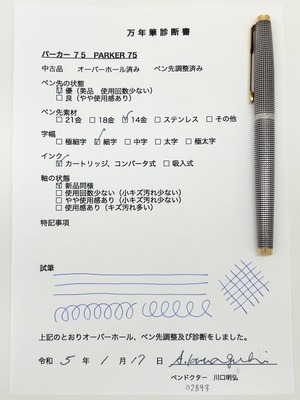 万年筆診断書
パーカー 75 PARKER 75
中古品 オーバーホール済み ペン先調整済み
ペン先の状態
☑優（美品 使用回数少ない）
□良（やや使用感あり）
ペン先素材
□21金 □18金 ☑14金 □ステンレス □その他
字幅
□極細字 ☑細字 □中字 □太字 □極太字
インク
☑カートリッジ、コンバータ式 □吸入式
軸の状態
☑新品同様
□使用回数少ない（小キズ汚れ少ない）
□やや使用感あり（小キズ汚れ少ない）
□使用感あり（キズ汚れ多い）
特記事項
試筆
上記のとおりオーバーホール、ペン先調整及び診断をしました。
令和 5 年 1 月 17 日
ペンドクター 川口明弘
02893